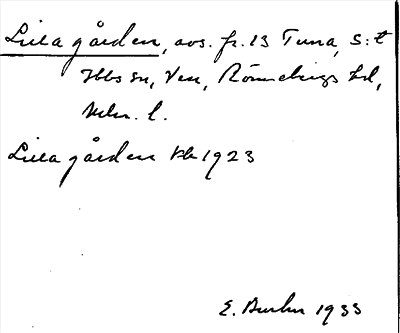 Lilla gården, avs. fr. 13 Tuna, S:t
Ibbs sn, Ven, Rönnebergs hd,
Mlm. l.
Lilla gården kb 1923
E. 1933